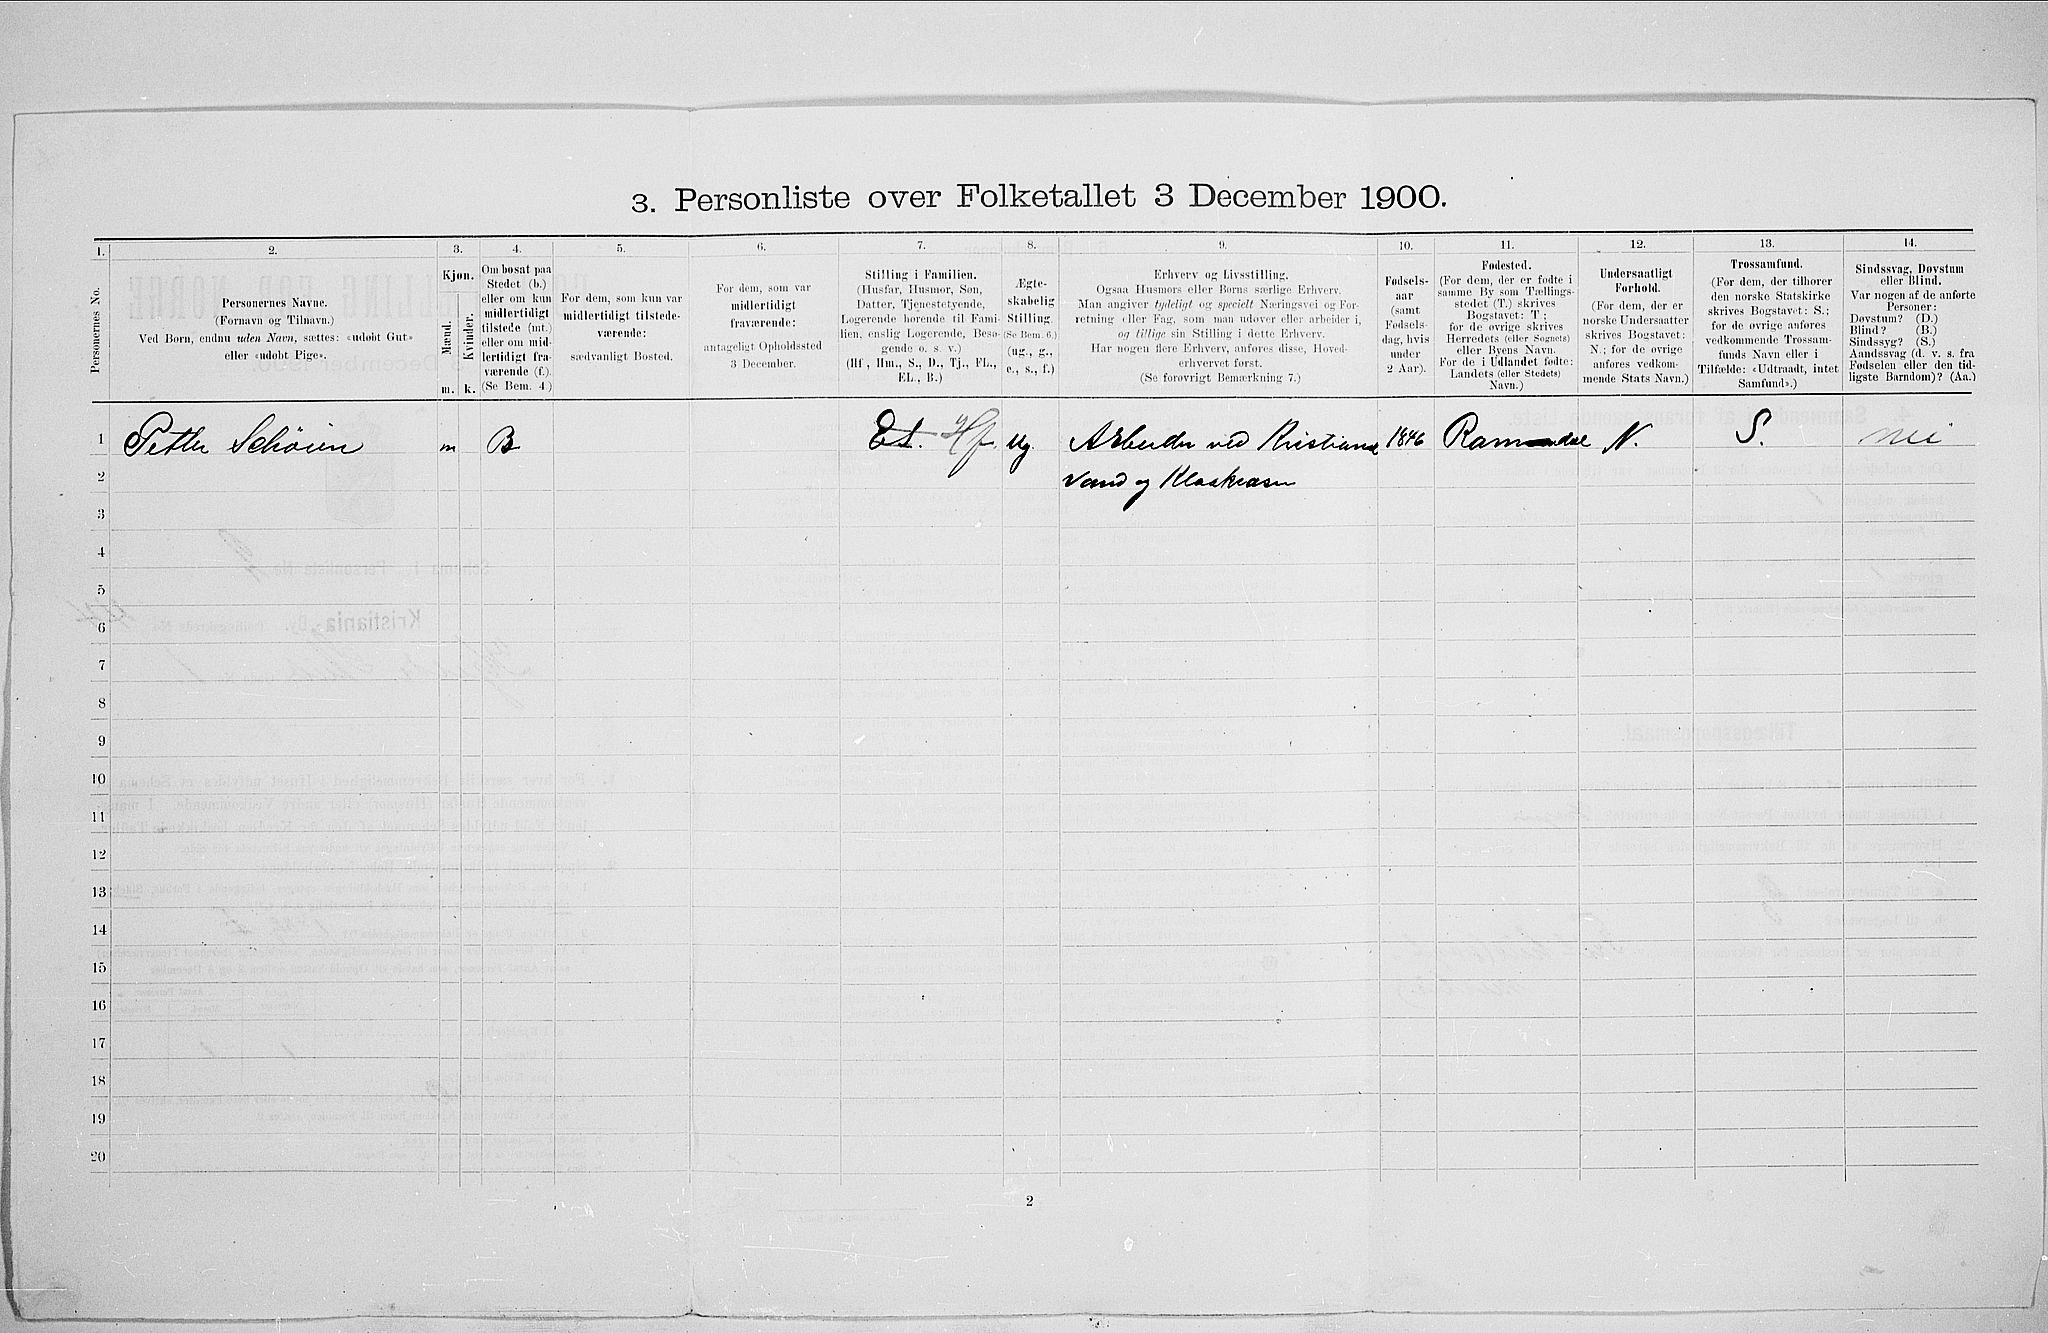 3. Personliste over Folketallet 3 December 1900.
1.
2.
3.
4.
5.
6.
7.
8.
9.
10.
11.
12.
13.
14.
Personernes No.
Personernes Navne.
(Fornavn og Tilnavn.)
Ved Børn, endnu uden Navn, sættes: «udøbt Gut»
eller «udøbt Pige».
Kjøn.
Mænd.
Kvinder.
m.
k.
Om bosat paa
Stedet (b.)
eller om kun
midlertidigt
tilstede (mt.)
eller om mid-
lertidigt fra-
værende (f.).
(Se Bem. 4.)
For dem, som kun var
midlertidigt tilstede-
værende:
sædvanligt Bosted.
For dem, som var
midlertidigt
fraværende:
antageligt Opholdssted
3 December.
Stilling i Familien.
(Husfar, Husmor, Søn,
Datter, Tjenestetyende,
Logerende hørende til Fami-
lien, enslig Logerende, Besø-
gende o. s. v.)
(Hf., Hm., S., D., Tj., FL.,
EL., B.)
Ægte-
skabelig
Stilling.
(Se Bem. 6.)
(ug., g.,
e., s., f.)
Erhverv og Livsstilling.
Ogsaa Husmors eller Børns særlige Erhverv.
Man angiver tydeligt og specielt Næringsvei og For-
retning eller Fag, som man udøver eller arbeider i,
og tillige sin Stilling i dette Erhverv.
Har nogen flere Erhverv, anføres disse, Hoved-
erhvervet først.
(Se forøvrigt Bemærkning 7.)
Fødsels-
aar
(samt
Fødsels-
dag, hvis
under
2 Aar).
Fødested.
(For dem, der er fødte i
samme By som Tællings-
stedet (T.) skrives
Bogstavet: T;
for de øvrige skrives
Herredets (eller Sognets)
eller Byens Navn.
For de i Udlandet fødte:
Landets (eller Stedets)
Navn.)
Undersaatligt
Forhold.
(For dem, der er
norske Undersaatter
skrives Bogstavet:
N.; for de øvrige
anføres vedkom-
mende Stats Navn.)
Trossamfund.
(For dem, der tilhører
den norske Statskirke
skrives Bogstavet: S.;
for de øvrige anføres
vedkommende Trossam-
funds Navn eller i
Tilfælde: «Udtraadt, intet
Samfund».)
Sindssvag, Døvstum
eller Blind.
Var nogen af de anførte
Personer:
Døvstum? (D.)
Blind? (B.)
Sindssyg? (S.)
Aandssvag (d. v. s. fra
Fødselen eller den tid-
ligste Barndom)? (Aa.)
1 Petter Schøien m B EL. Hf. Ug. Arbeider ved Kristiania 1846 Ramendal N. S. nei
2 Vand og
3
4
5
6
7
8
9
10
11
12
13
14
15
16
17
18
19
20
2